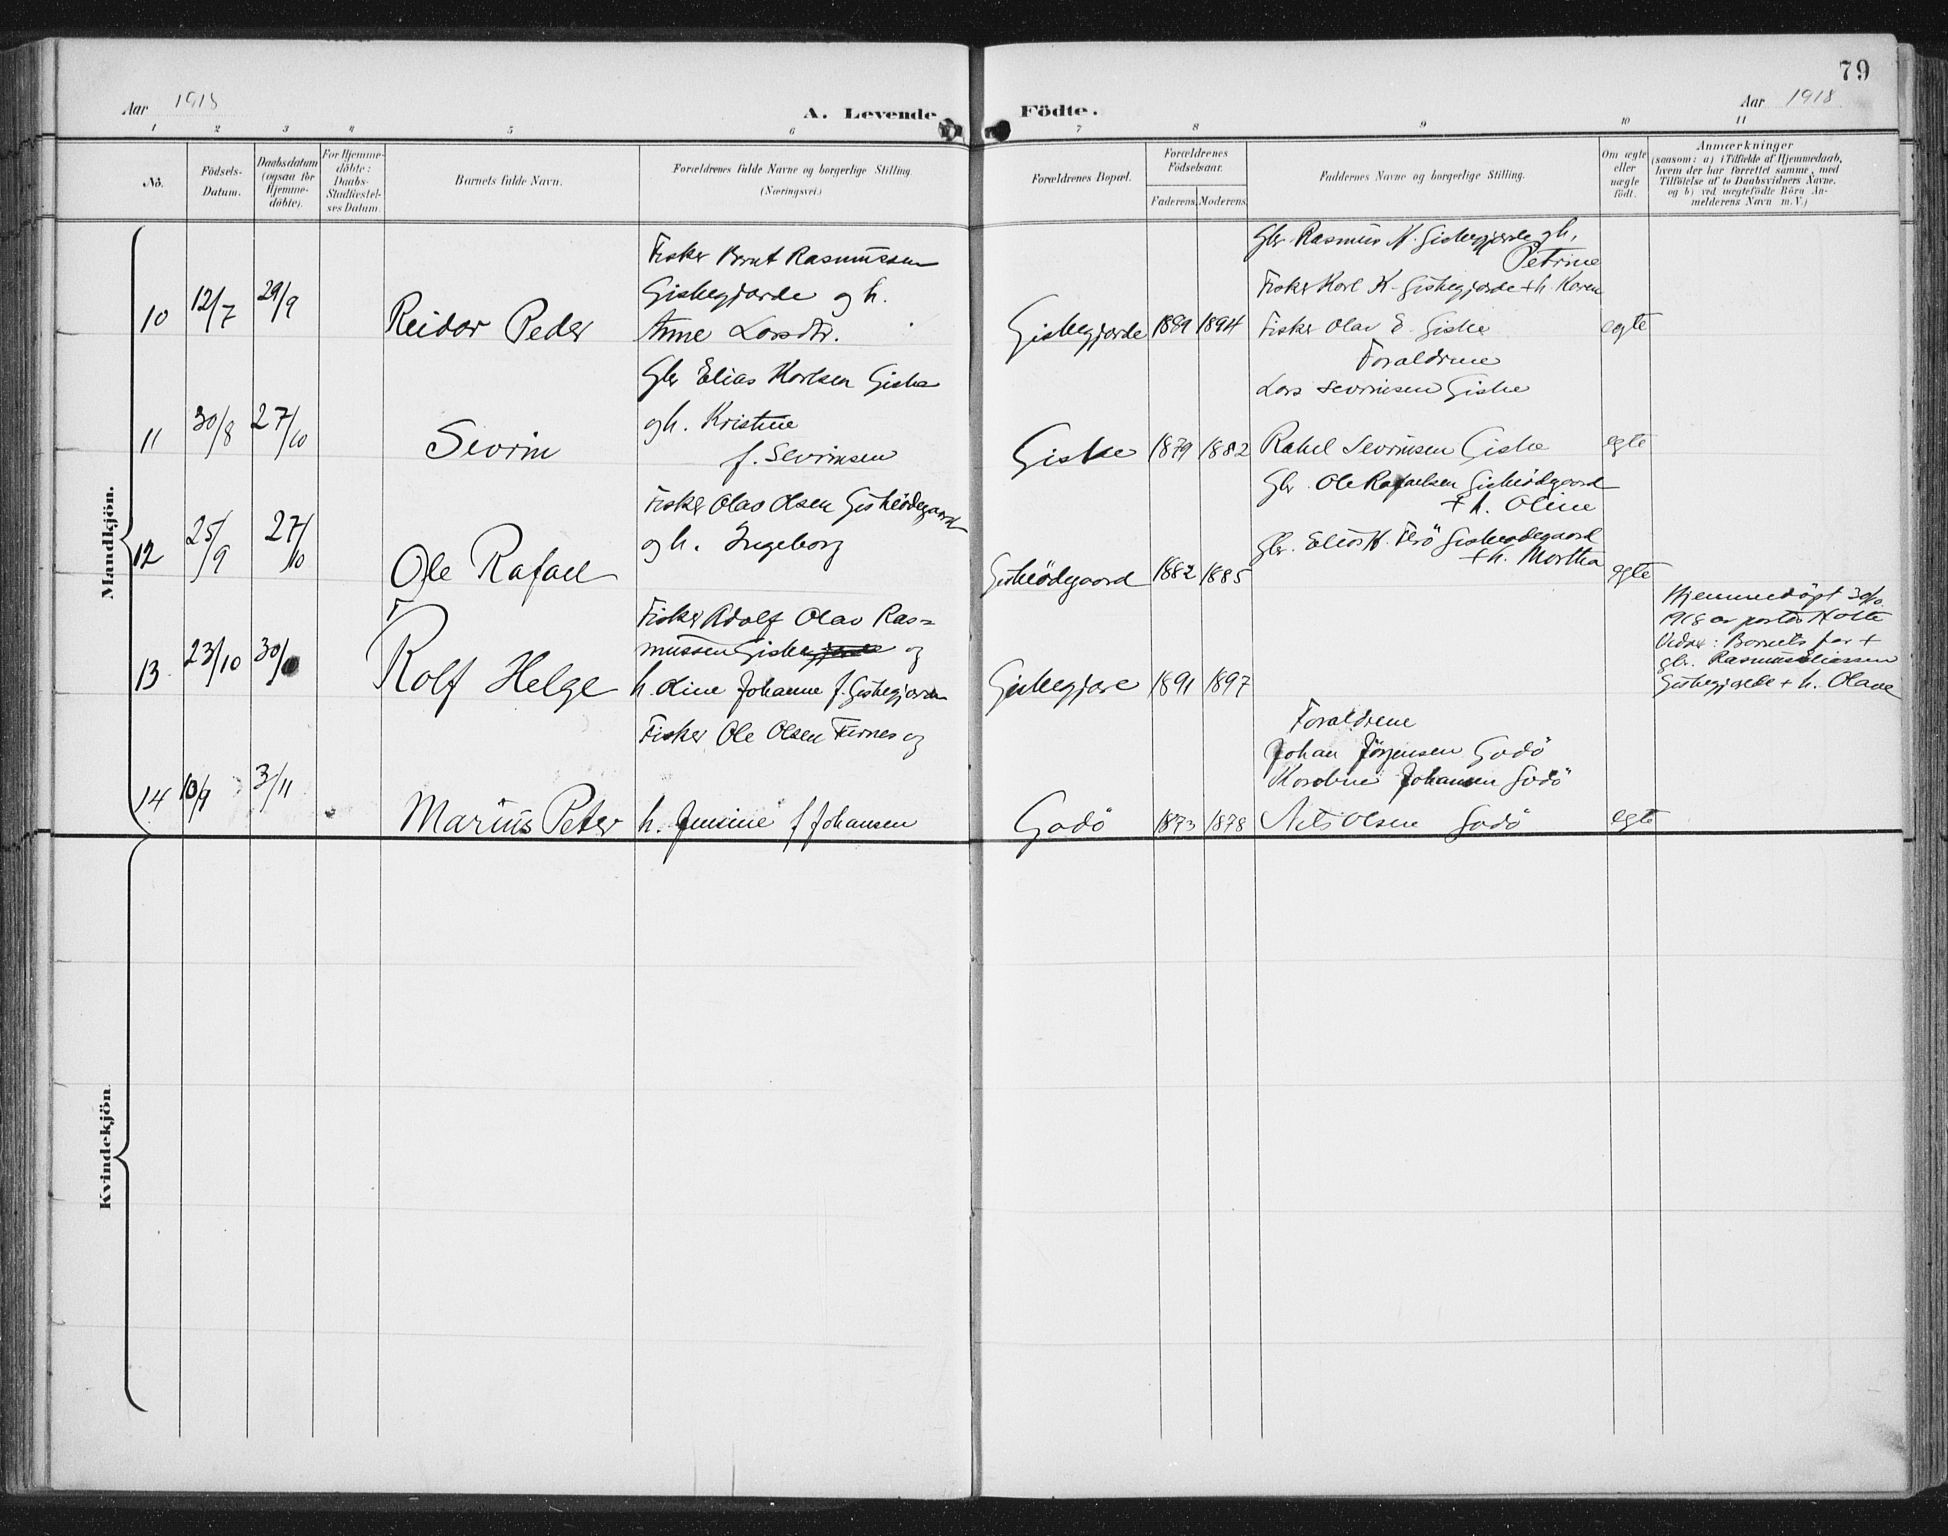 79
Aar 1918
A. Levende
Födte.
Aar 1918
1 2 3 4 5 6 7 8 9 10 11
No.
Födsels-
Datum.
Daabsdatum
(ogsaa for
Hjemme-
döbte).
For Hjemme-
döbte:
Daabs-
Stadfæstel-
ses Datum.
Barnets fulde Navn.
Forældrenes fulde Navne og borgerlige Stilling.
(Næringsvei.)
Forældrenes Bopæl.
Forældrenes
Födselsaar.
Faderens. Moderens.
Faddernes Navne og borgerlige Stilling.
Om ægte
eller
uægte
født.
Anmærkninger
(saasom: a) i Tilfælde af Hjemmedaab,
hvem der har forrettet samme, med
Tilföielse af to Daabsvidners Navne,
og b) ved uægtefödte Börn An-
melderens Navn m. V.)
Mandkjön.
10
12/7
29/9
Reidar Peder
Fisker Bernt Rasmussen
Giskegjærde og h.
Anne Larsdtr.
Giskegjærde
1889 1894
Gbr. Rasmus K. Giskegjerde og h.
Petrine
Fisker Karl K. Giskegjerde + h. Karen
Fisker Olav E. Giske
Foraldrene
egte
11
30/8
27/10
Sevrin
Gbr Elias Karlsen Giske
og h. Kristine
f. Sevrinsen
Giske
1879 1882
Lars Sevrinsen Giske
Rakel Sevrinsen Giske
egte
12
25/9
27/10
Ole Rafael
Fisker Olav Olsen Giskeödegaard
og h. Ingeborg
Giskeödegaard
1882 1885
Gbr. Ole Rafaelsen Giskeödegaard
+ h. Oline
Gbr. Elias K. Flö Giskeödegaard
+ h. Martha
egte
13
23/10
30/
Rolf Helge
Fisker Adolf Olav Ras=
mussen Giskegjerde og
h. Line Johanne f. Giskegjerde
Giskegjære
1891 1897
Hjemmedöpt 30/
1918 av pastor Hatte
Vidner: Barnets far +
gbr. Rasmus Eliassen
Giskegjærde + h. Olave
14
10/9
3/11
Marius Peter
Fisker Ole Olsen Furnes og
h. Jensine f Johansen
Godö
1873 1878
Foraldrene
Johan Jörgensen Godö
Karoline Johansen Godö
Nils Olsen Godö
egte
Kvindekjön.